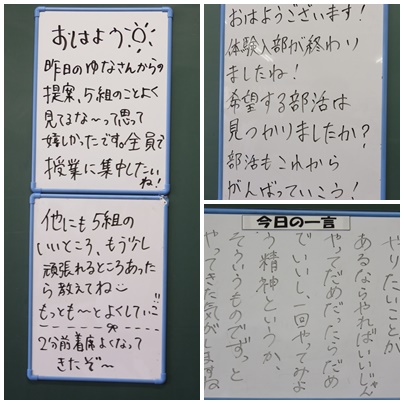 おはよう
昨日のゆなさんからの
提案、5組のことよく
見てるな〜って思って
嬉しかったです。全員で
授業に集中したい
ね!
他にも5組の
いいところ、もう少し
頑張れるところあった
ら教えてね
もっとも〜とよくしていこ
2分前着席よくなって
きたぞ〜
おはようございます!
体験入部が終わり
ましたね!
希望する部活は
見つかりましたか?
部活もこれから
がんばっていこう!
今日の一言
やりたいことが
あるならやればいいじゃん
やってだめだったらだめ
でいいし、一回やってみよ
う精神というか、
そういうものでずっと
やってきた気がしますね